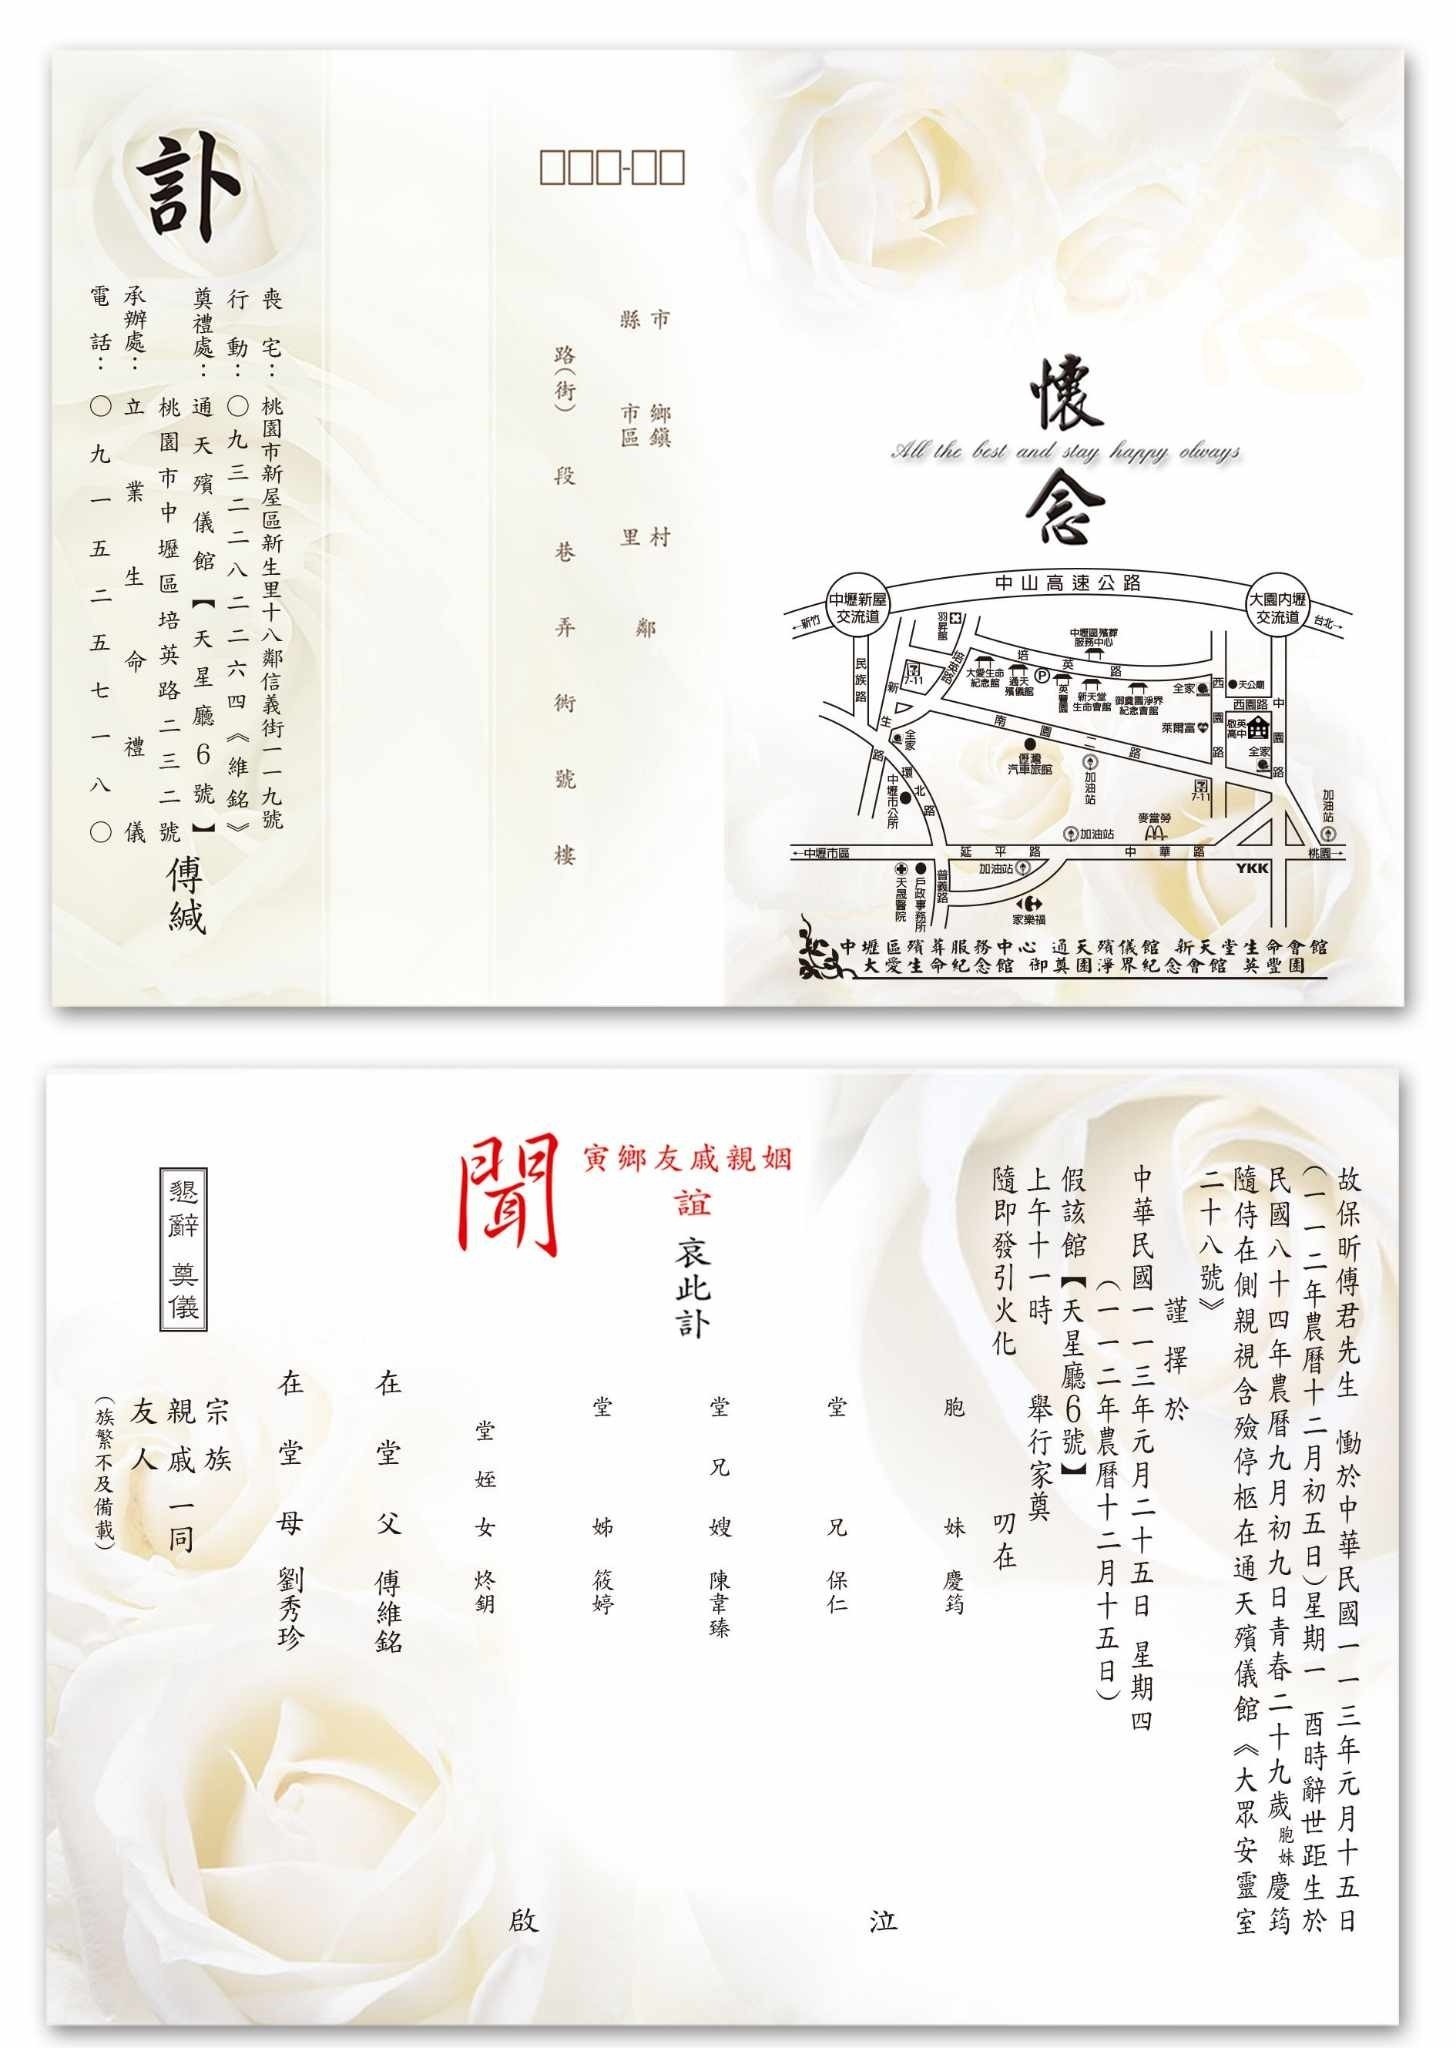 訃
喪宅：桃園市新屋區新生里十八鄰信義街一一九號
行動：〇九三二二八二二六四《維銘》
奠禮處：通天殯儀館【天星廳6號】
桃園市中壢區培英路二三二號
承辦處：立業生命禮儀
電話：〇九一五二五七一八〇
傅緘
□□□-□□
縣市
市區鄉鎮
里村
鄰
路(街)段巷弄衖號樓
懷念
All the best and stay happy always
中山高速公路
中壢新屋交流道
大園內壢交流道
←新竹
台北→
羽昇館
中壢區殯葬服務中心
培英路
培英路
民族路
7-11
大愛生命紀念館
通天殯儀館
P
英豐園
新天堂生命會館
御奠園淨界紀念會館
全家
西園路
天公廟
西園路
中園路
啟英高中
萊爾富
全家
新生路
全家
南園二路
俋灣汽車旅館
加油站
環北路
中壢市公所
7-11
加油站
麥當勞
加油站
←中壢市區
延平路
中華路
桃園→
加油站
YKK
天晟醫院
戶政事務所
普義路
家樂福
中壢區殯葬服務中心 通天殯儀館 新天堂生命會館
大愛生命紀念館 御奠園淨界紀念會館 英豐園
故保昕傅君先生 慟於中華民國一一三年元月十五日
(一一二年農曆十二月初五日)星期一 酉時辭世距生於
民國八十四年農曆九月初九日青春二十九歲胞妹慶筠
隨侍在側親視含殮停柩在通天殯儀館《大眾安靈室
二十八號》
謹擇於
中華民國一一三年元月二十五日 星期四
(一一二年農曆十二月十五日)
假該館【天星廳6號】
上午十一時 舉行家奠
隨即發引火化 叨在
寅鄉友戚親姻
誼 哀此訃
聞
胞妹 慶筠
堂兄 保仁
堂兄嫂 陳韋臻
堂姊 筱婷
堂姪女 炵鈅
在堂父 傅維銘
在堂母 劉秀珍
泣啟
宗族
親戚一同
友人
(族繁不及備載)
懇辭 奠儀